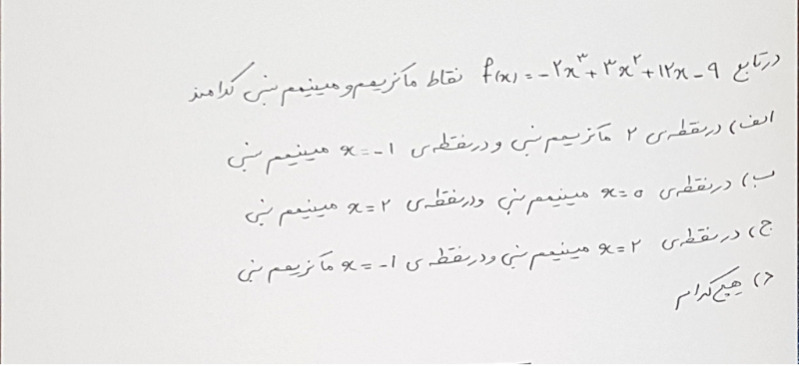 درتابع f(x) = -۲x^۳ + ۳x^۲ + ۱۲x - ۹ نقاط ماکزیمم و مینیمم نسبی کدامند
الف) درنقطه‌ی ۲ ماکزیمم نسبی و درنقطه‌ی x = -۱ مینیمم نسبی
ب) درنقطه‌ی x = ۰ مینیمم نسبی ودرنقطه‌ی x = ۲ مینیمم نسبی
ج) درنقطه‌ی x = ۲ مینیمم نسبی ودرنقطه‌ی x = -۱ ماکزیمم نسبی
د) هیچ کدام